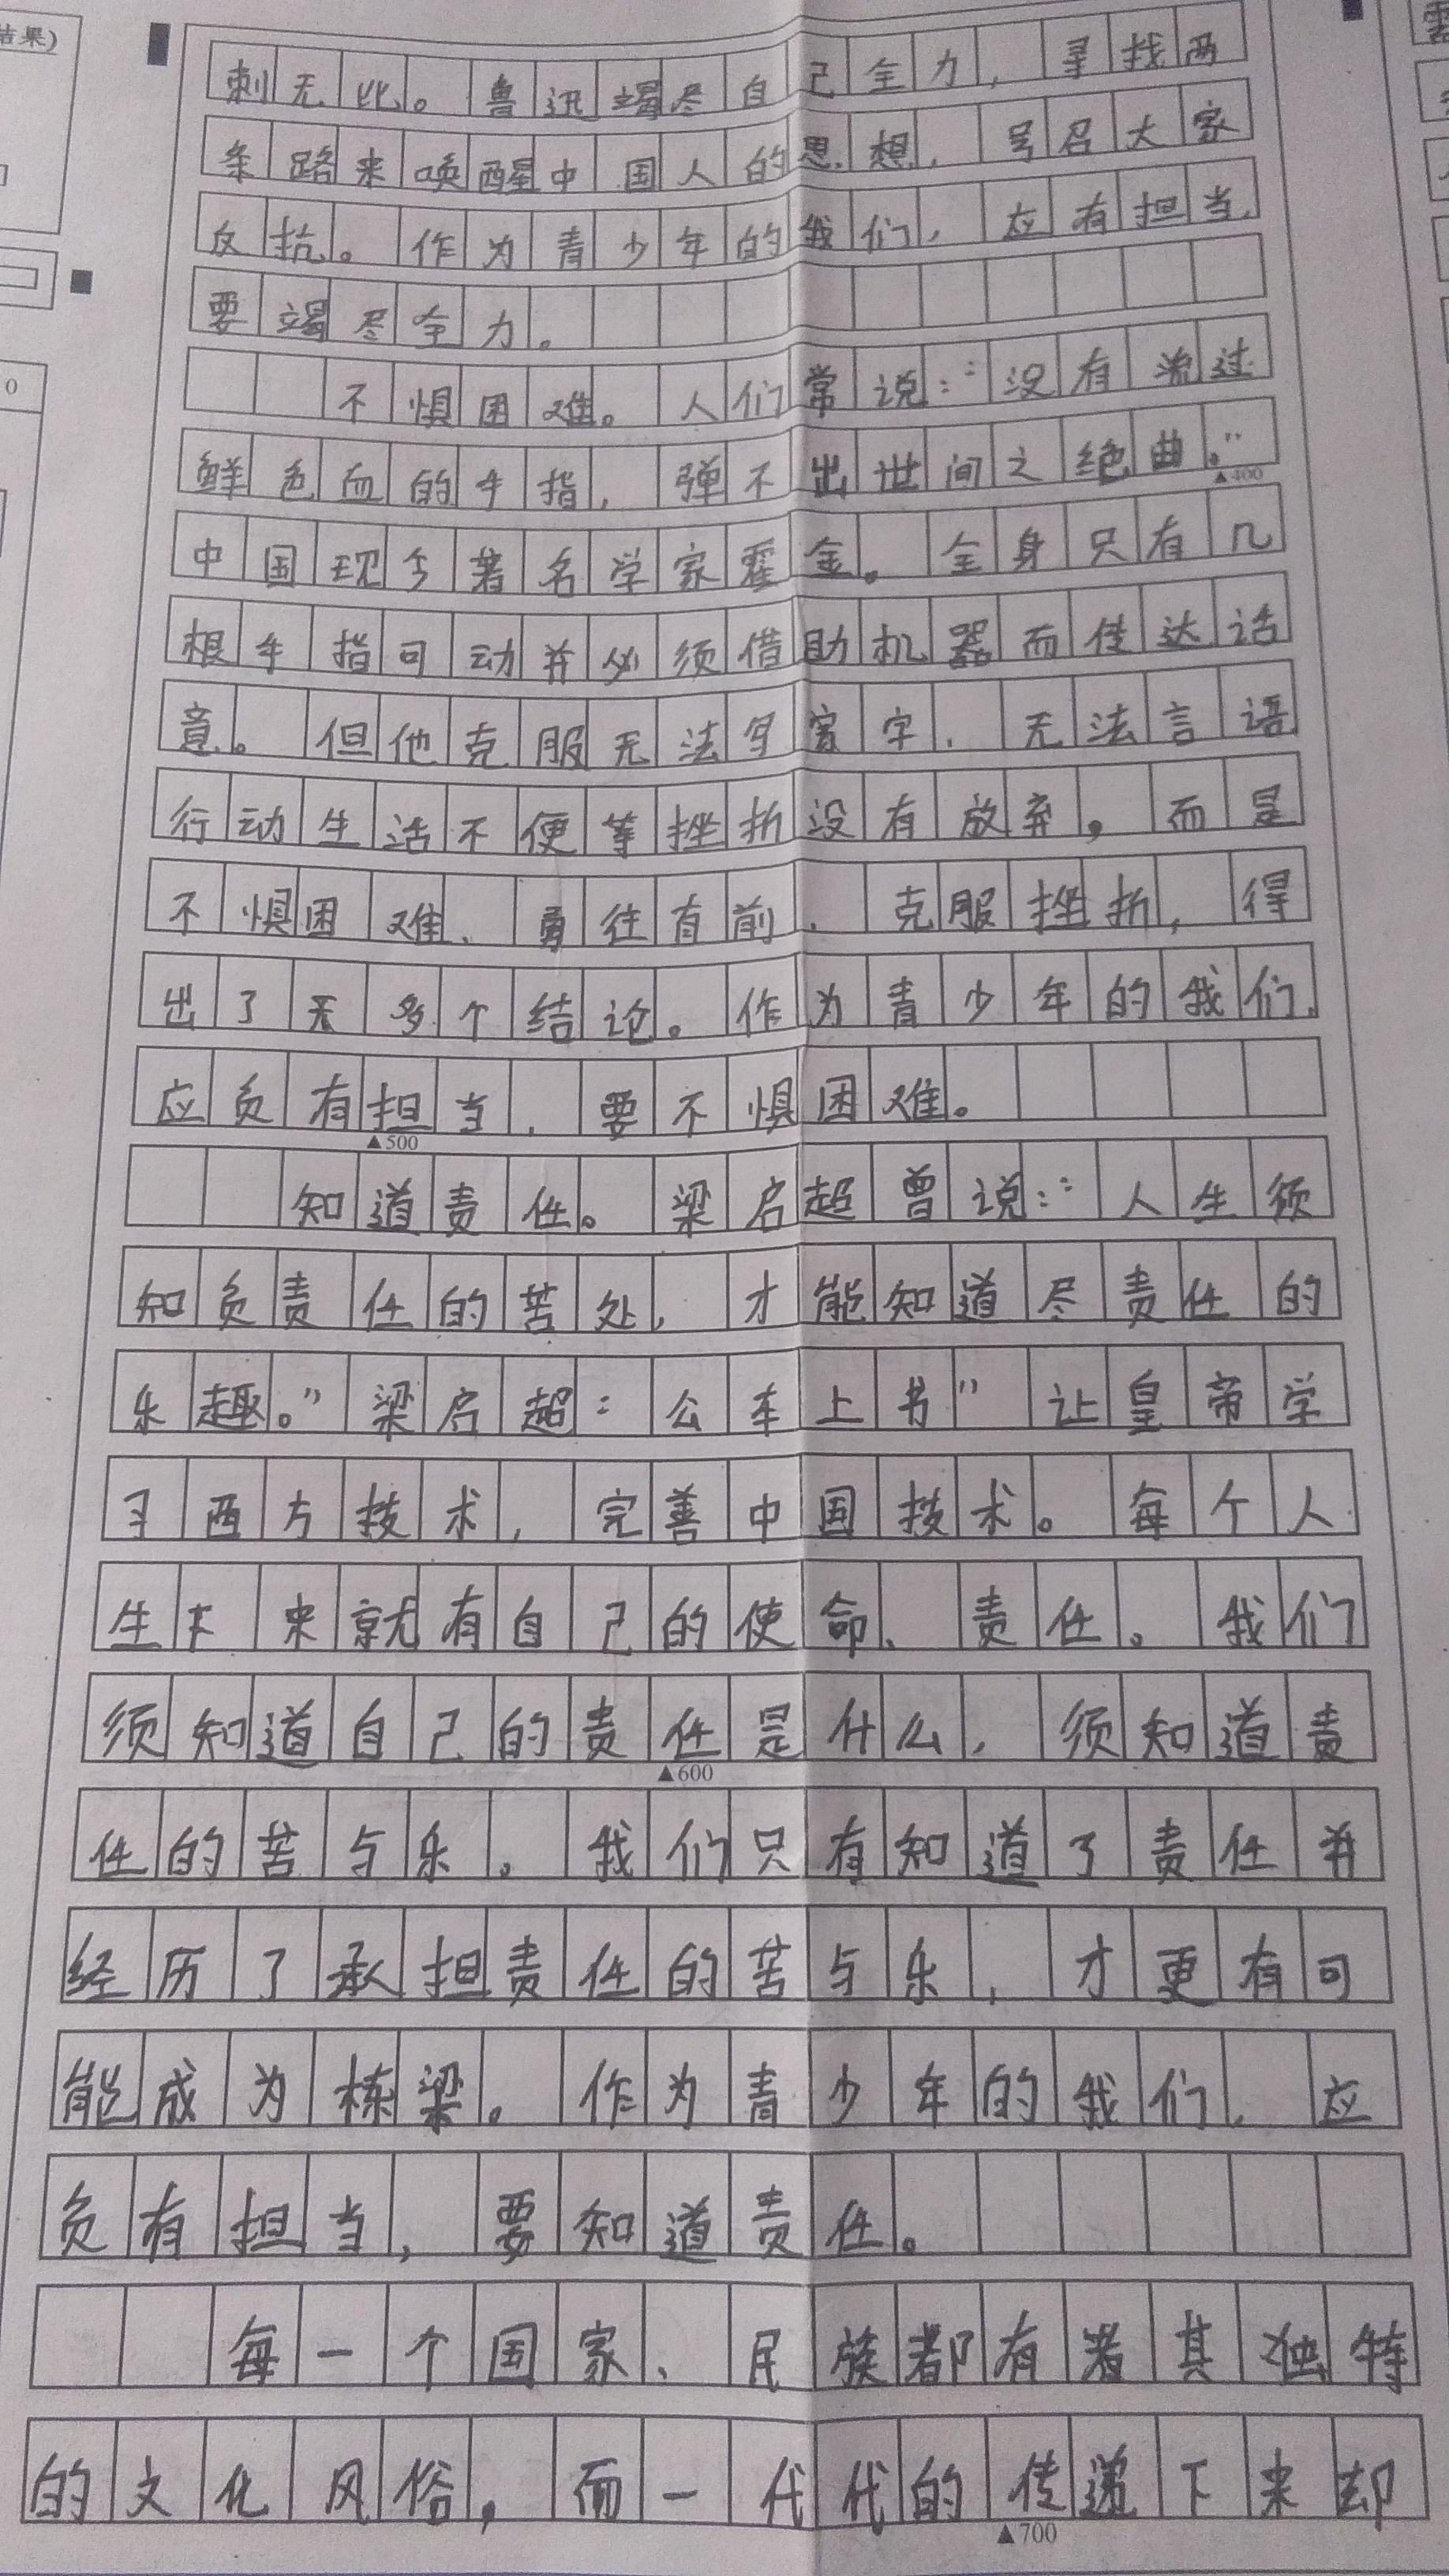 结果)
刺无比。鲁迅竭尽自己全力，寻找两
条路来唤醒中国人的思想，号召大家
反抗。作为青少年的我们，应有担当，
要竭尽全力。
0
不惧困难。人们常说：“没有流过
鲜色血的手指，弹不出世间之绝曲。”
▲400
中国现今著名学家霍金。全身只有几
根手指可动并必须借助机器而传达话
意。但他克服无法写字，无法言语
行动生活不便等挫折没有放弃，而是
不惧困难、勇往直前、克服挫折，得
出了无多个结论。作为青少年的我们，
应负有担当，要不惧困难。
▲500
知道责任。梁启超曾说：“人生须
知负责任的苦处，才能知道尽责任的
乐趣。”梁启超“公车上书”让皇帝学
习西方技术，完善中国技术。每个人
生下来就有自己的使命、责任。我们
须知道自己的责任是什么，须知道责
▲600
任的苦与乐。我们只有知道了责任并
经历了承担责任的苦与乐，才更有可
能成为栋梁。作为青少年的我们，应
负有担当，要知道责任。
每一个国家、民族都有着其独特
的文化风俗，而一代代的传递下来却
▲700